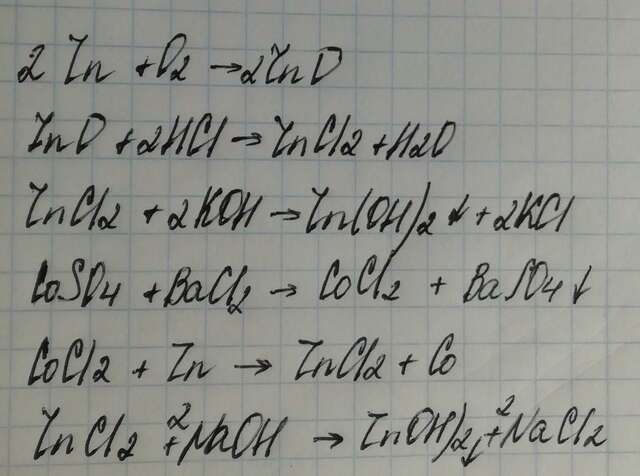 2 Zn + O2 → 2ZnO
ZnO + 2HCl → ZnCl2 + H2O
ZnCl2 + 2KOH → Zn(OH)2↓ + 2KCl
CoSO4 + BaCl2 → CoCl2 + BaSO4↓
CoCl2 + Zn → ZnCl2 + Co
ZnCl2 + 2NaOH → ZnOH)2↓ + 2NaCl2